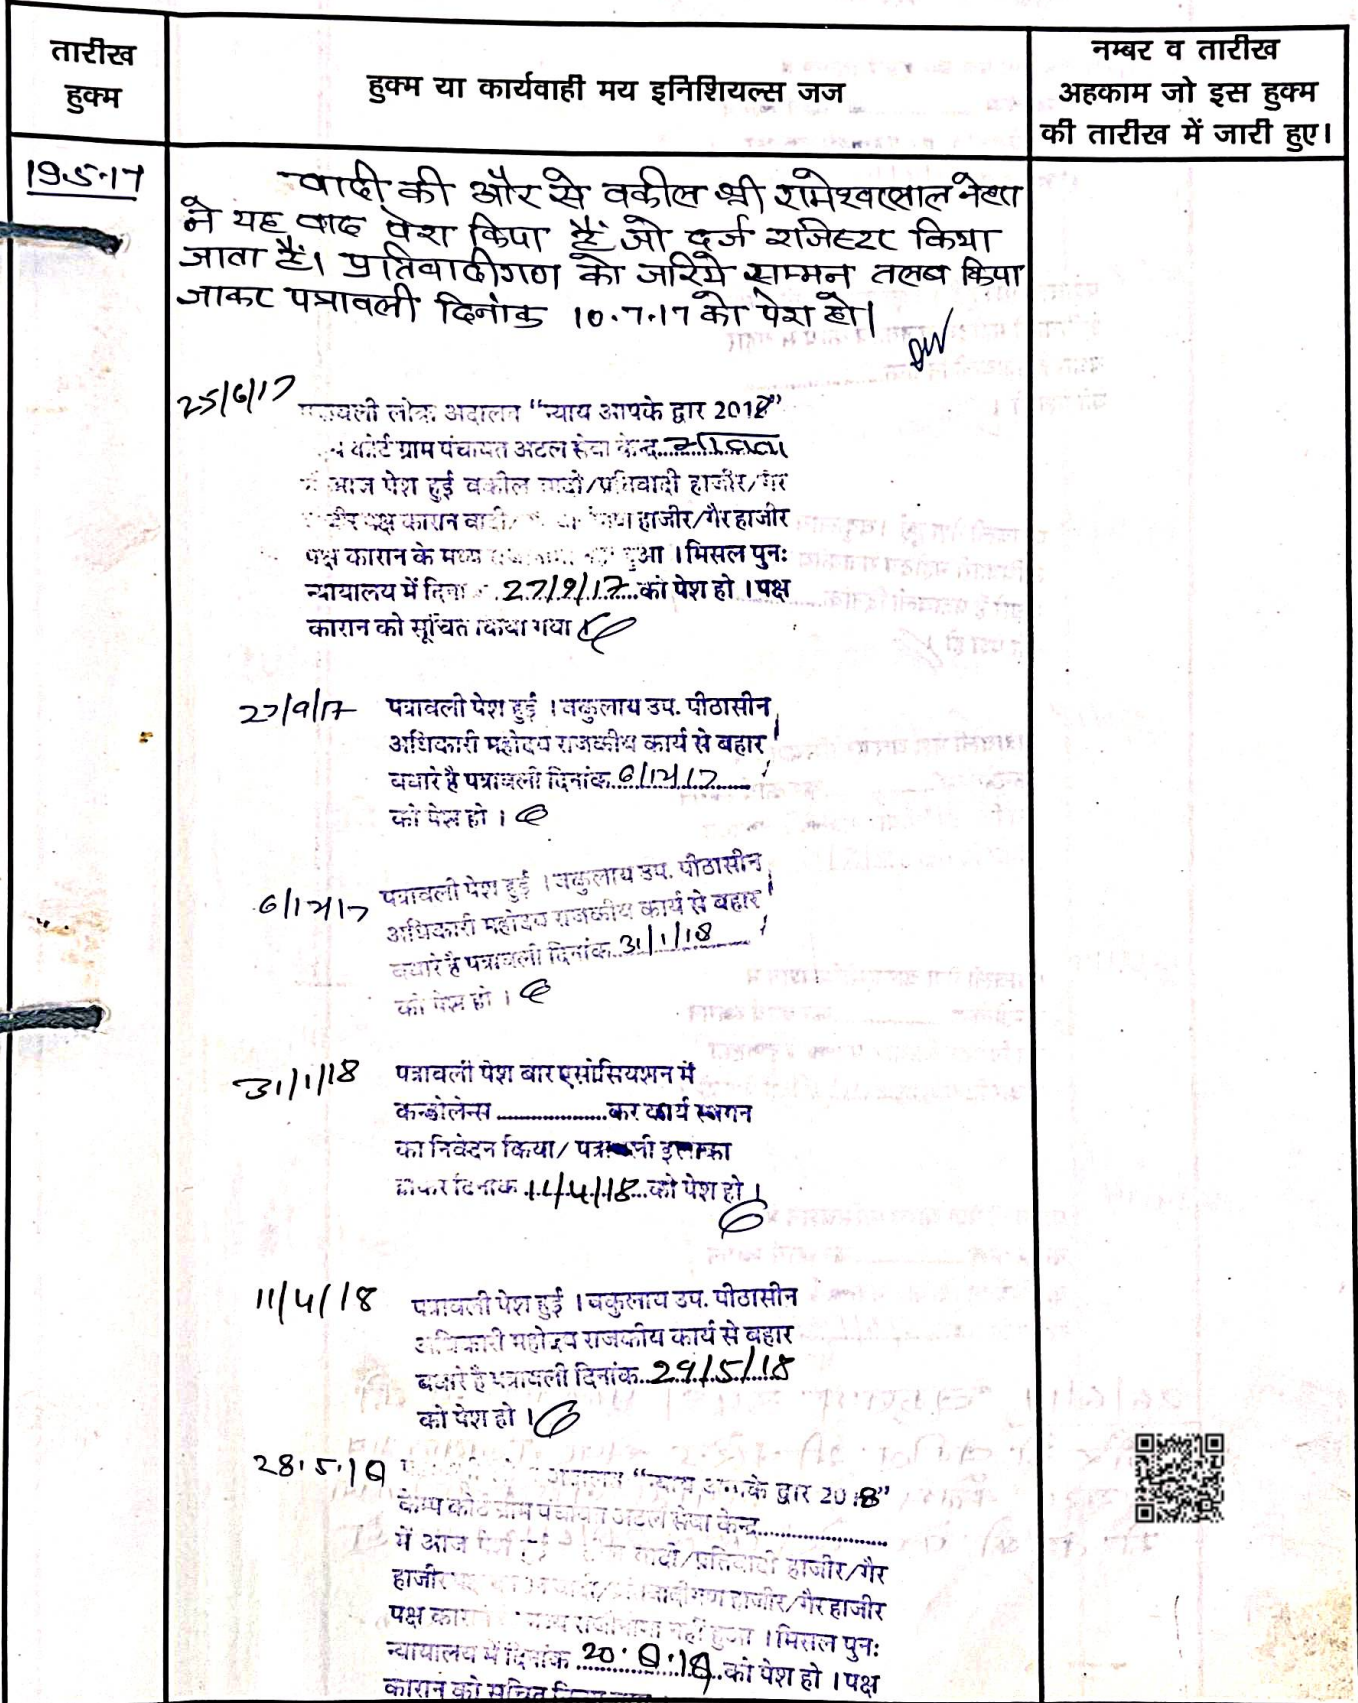 तारीख
हुक्म
हुक्म या कार्यवाही मय इनिशियल्स जज
नम्बर व तारीख
अहकाम जो इस हुक्म
की तारीख में जारी हुए।
19.5.17
वादी की और से वकील श्री रामेश्वरलाल
ने यह वाद पेश किया हैं जो दर्ज रजिस्टर किया
जाता हैं। प्रतिवादीगण को जरिये सम्मन तलब किया
जाकर पत्रावली दिनांक 10.7.17 को पेश हो।
25/6/17
पत्रावली लोक अदालत “न्याय आपके द्वार 2017”
कोर्ट ग्राम पंचायत अटल सेवा केन्द्र
में आज पेश हुई वकील वादी/प्रतिवादी हाजीर/गैर
पक्ष कारान वादी/ हाजीर/गैर हाजीर
पक्ष कारान के मध्य हुआ । मिसल पुनः
न्यायालय में दिनांक 27/9/17 को पेश हो । पक्ष
कारान को सूचित किया गया ।
27/9/17
पत्रावली पेश हुई । वकुलाय उप. पीठासीन
अधिकारी महोदय राजकीय कार्य से बहार
पधारे है पत्रावली दिनांक 6/12/17
को पेश हो ।
6/12/17
पत्रावली पेश हुई । वकुलाय उप. पीठासीन
अधिकारी महोदय राजकीय कार्य से बहार
पधारे है पत्रावली दिनांक 31/1/18
को पेश हो ।
31/1/18
पत्रावली पेश बार एसोसियशन में
कन्डोलेन्स ............ कर कार्य स्थगन
का निवेदन किया/ पत्रावली
होकर दिनांक 11/4/18 को पेश हो ।
11/4/18
पत्रावली पेश हुई । वकुलाय उप. पीठासीन
अधिकारी महोदय राजकीय कार्य से बहार
पधारे है पत्रावली दिनांक 29/5/18
को पेश हो ।
28.5.18
अदालत “न्याय आपके द्वार 2018”
केम्प कोर्ट ग्राम पंचायत अटल सेवा केन्द्र............
में आज वादी/प्रतिवादी हाजीर/गैर
हाजीर हाजीर/गैर हाजीर
पक्ष कारान मध्य राजीनामा नहीं हुआ । मिसल पुनः
न्यायालय में दिनांक 20.8.18 को पेश हो । पक्ष
कारान को सूचित किया गया